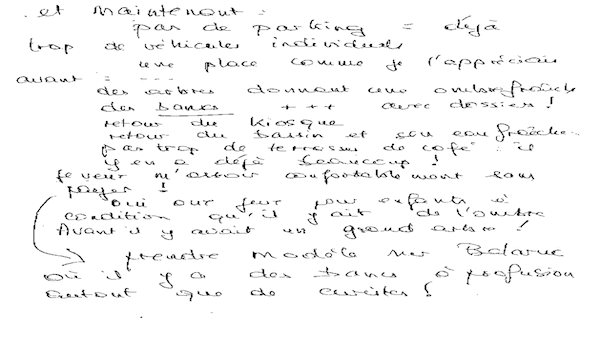 et maintenant :
pas de parking = déjà
trop de véhicules individuels
une place comme je l'appréciais
avant : ---
des arbres donnant une ombre fraîche
des bancs +++ avec dossier !
retour du Kiosque
retour du bassin et son eau fraîche
pas trop de terrasses de café : il
y en a déjà beaucoup !
je veux m'assoir confortablement sans
payer !
Oui aux jeux pour enfants à
condition qu'il y ait de l'ombre
Avant il y avait un grand arbre !
prendre modèle sur Balaruc
où il y a des bancs à profusion
autant que de curistes !